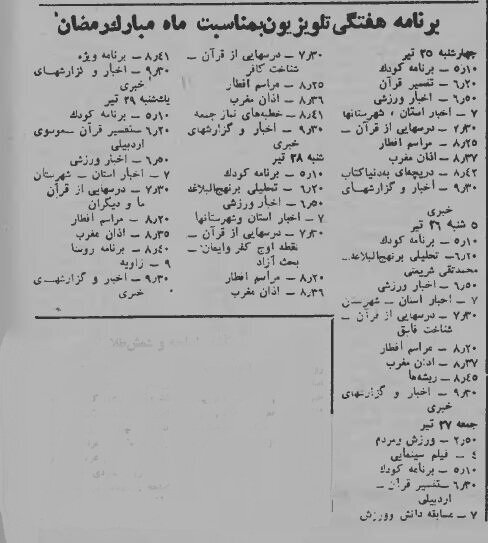 برنامه هفتگی تلویزیون بمناسبت ماه مبارك رمضان
چهارشنبه ۲۵ تیر
۵٫۱۰ – برنامه کودك
۶٫۲۰ – تفسیر قرآن
۶٫۵۰ – اخبار ورزشی
۷ – اخبار استان ، شهرستانها
۷٫۳۰ – درسهایی از قرآن –
۸٫۲۵ – مراسم افطار
۸٫۳۷ – اذان مغرب
۸٫۴۲ – دریچه‌ای به‌دنیاکتاب
۹٫۳۰ – اخبار و گزارشهای
خبری
۵ شنبه ۲۶ تیر
۵٫۱۰ – برنامه کودك
۶٫۲۰– تحلیلی برنهج‌البلاغه–
محمدتقی شریعتی
۶٫۵۰ – اخبار ورزشی
۷ – اخبار استان – شهرستان
۷٫۳۰ – درسهایی از قرآن –
شناخت فاسق
۸٫۲۰ – مراسم افطار
۸٫۳۷ – اذان مغرب
۸٫۴۵ – ریشه‌ها
۹٫۳۰ – اخبار و گزارشهای
خبری
جمعه ۲۷ تیر
۲٫۵۰ – ورزش ومردم
۴ – فیلم سینمایی
۵٫۱۰ – برنامه کودك
۶٫۳۰ –تفسیر قرآن –
اردبیلی
۷ – مسابقه دانش وورزش
۷٫۳۰ – درسهایی از قرآن –
شناخت کافر
۸٫۲۵ – مراسم افطار
۸٫۳۶ – اذان مغرب
۸٫۴۱ – خطبه‌های نماز جمعه
۹٫۳۰ – اخبار و گزارشهای
خبری
شنبه ۲۸ تیر
۵٫۱۰ – برنامه کودك
۶٫۲۰ – تحلیلی برنهج‌البلاغه
۶٫۵۰ – اخبار ورزشی
۷ – اخبار استان وشهرستانها
۷٫۳۰ – درسهایی از قرآن –
نقطه اوج کفر وایمان –
بحث آزاد
۸٫۲۰ – مراسم افطار
۸٫۳۶ – اذان مغرب
۸٫۴۱ – برنامه ویژه
۹٫۳۰ – اخبار و گزارشهای
خبری
یکشنبه ۲۹ تیر
۵٫۱۰ – برنامه کودك
۶٫۲۰ –تفسیر قرآن –موسوی
اردبیلی
۶٫۵۰ – اخبار ورزشی
۷ – اخبار استان – شهرستان
۷٫۳۰ – درسهایی از قرآن
ما و دیگران
۸٫۲۰ – مراسم افطار
۸٫۳۵ – اذان مغرب
۸٫۴۰ – برنامه روستا
۹ – زاویه
۹٫۳۰ – اخبار و گزارشهای
خبری